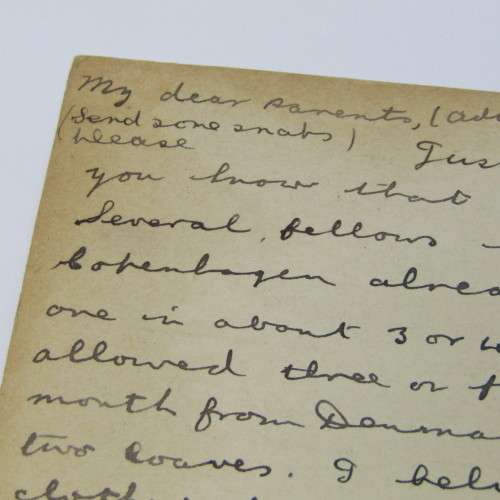 My dear parents, (adv
(Send some snabs)
please
Jus
you know that
Several fellows
Copenhagen alrea
one in about 3 or w
allowed three or f
month from Denma
two loaves. I beli
cloth